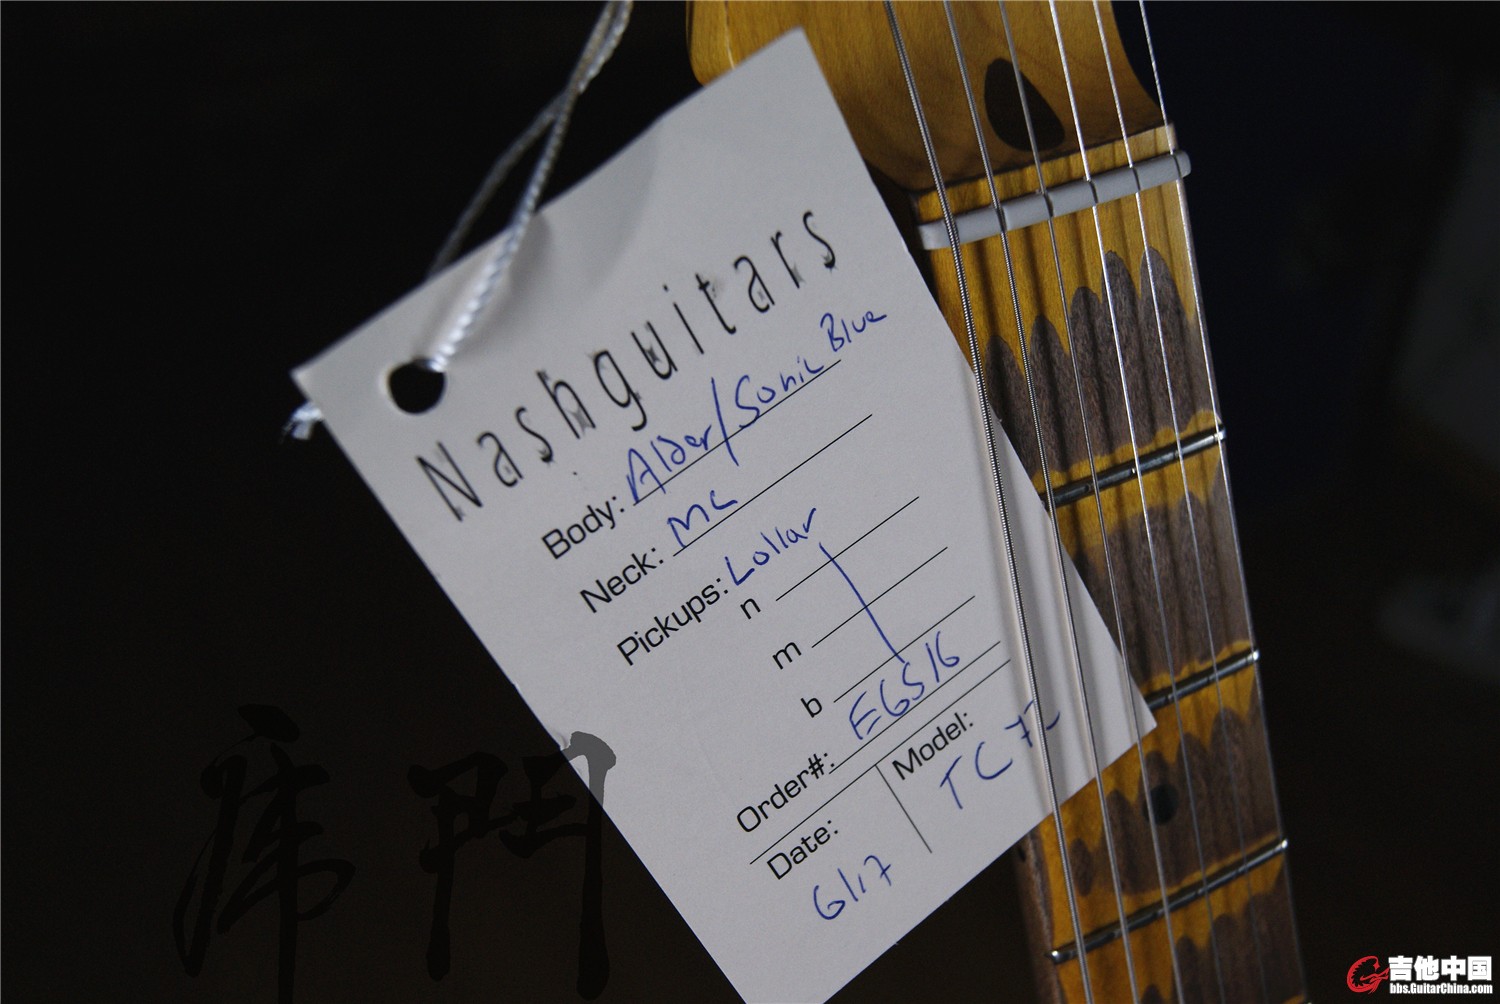 Nashguitars
Body: Alder/Sonic Blue
Neck: MC
Pickups: Lollar
n
m
b
Order#: EG516
Date: 6/17
Model: TC 72
吉他中国
bbs.GuitarChina.com